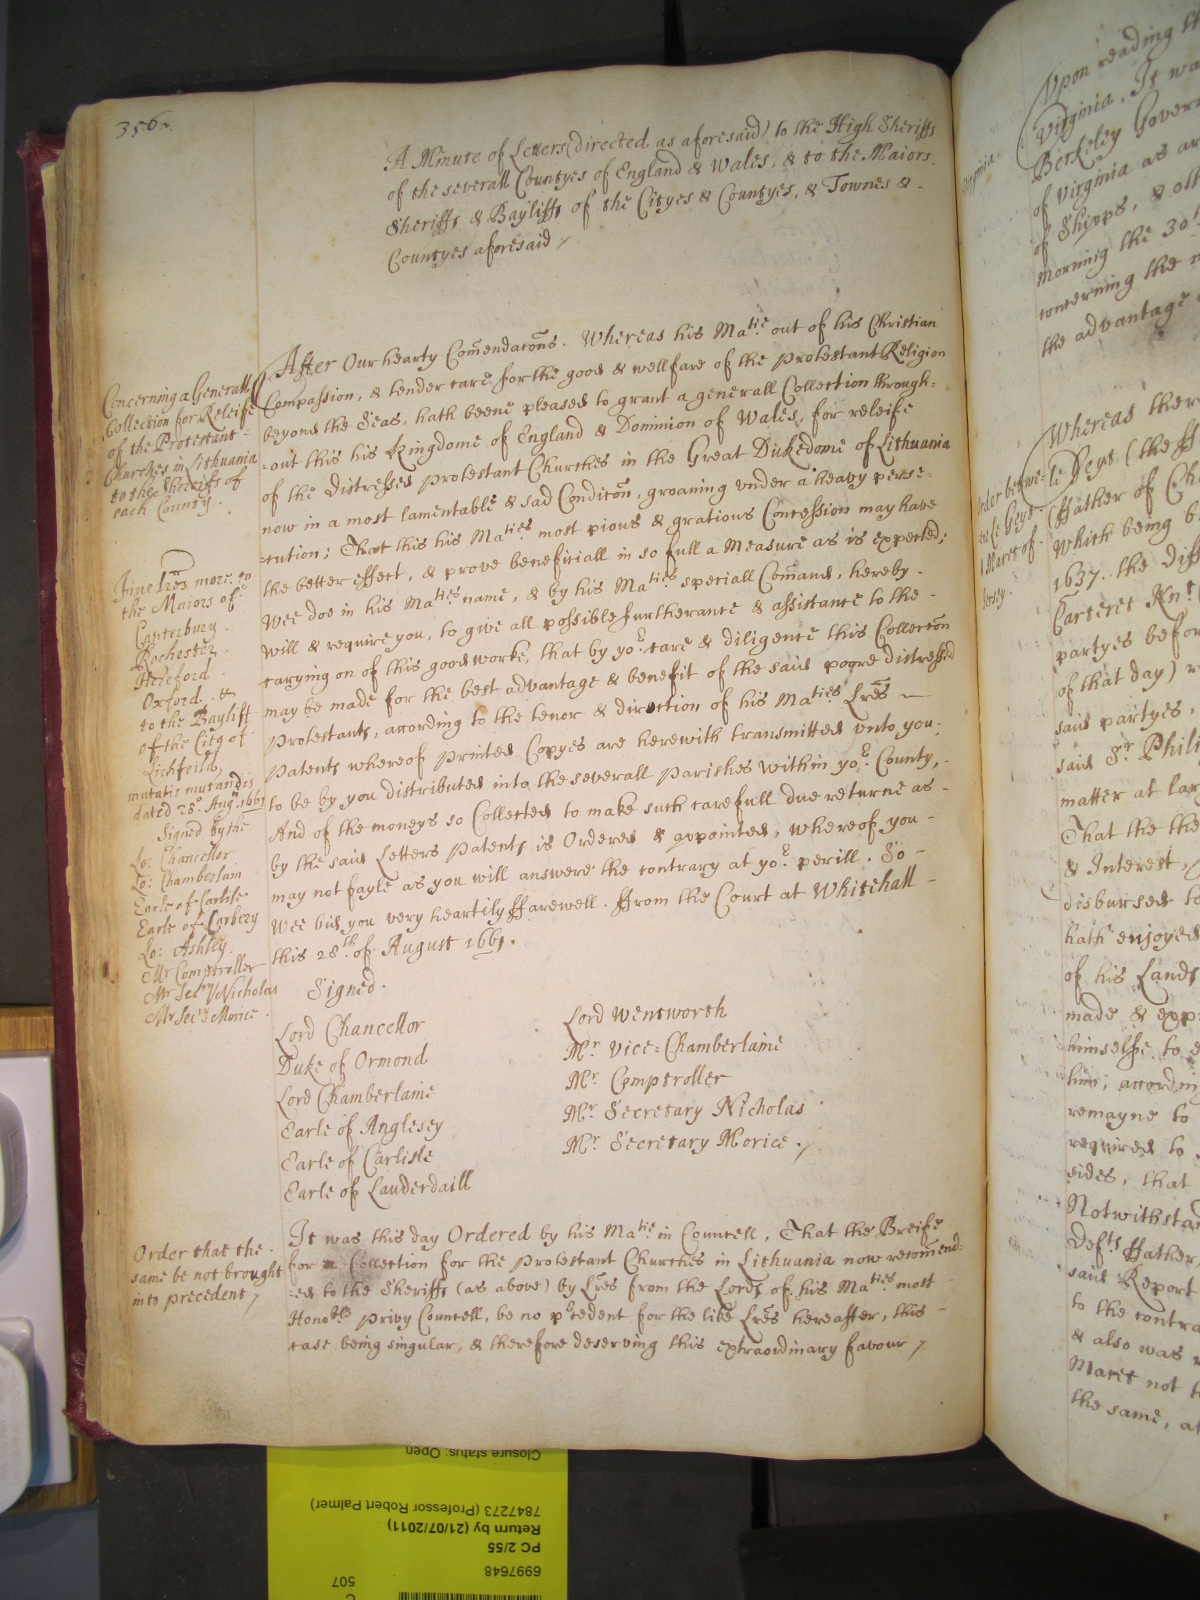 356.
A Minute of Letters (directed as aforesaid) to the High Sheriffs
of the severall Countyes of England & Wales, & to the Maiors,
Sheriffs & Bayliffs of the Cityes & Countyes, & Townes & -
Countyes aforesaid /
Concerning a Generall
Collection for Releife
of the Protestant -
Churches in Lithuania
to the Sheriffs of
each County.
After Our hearty Com̃endac̃ons. Whereas his Ma:tie out of his Christian
Compassion, & tender care for the good & wellfare of the Protestant Religion
beyond the Seas, hath beene pleased to grant a generall Collection through=
=out this his Kingdome of England & Dominion of Wales, for releife
of the distressed Protestant Churches in the Great Dukedome of Lithuania
now in a most lamentable & sad Condic̃on, groaning under a heavy perse=
=cution; That this his Ma:ties most pious & gratious Concession may have
the better effect, & prove beneficiall in so full a Measure as is expected;
Wee doe in his Ma:ties name, & by his Ma:ties speciall Com̃and, hereby -
will & require you, to give all possible furtherance & assistance to the -
carying on of this good worke, that by yo:r care & diligence this Collecc̃on
may be made for the best advantage & benefit of the said poore distressed
Protestants, according to the tenor & direction of his Ma:ties Lr̃es —
Patents whereof Printed Copyes are herewith transmitted unto you -
to be by you distributed into the severall Parishes within yo:r County, -
And of the moneys so Collected to make such carefull due returne as -
by the said Letters Patents is Ordered & appointed, whereof you -
may not fayle as you will answere the contrary at yo:r perill. So -
Wee bid you very heartily ffarewell. ffrom the Court at Whitehall -
this 28:th of August 1661.
more to
the Maiors of
Canterbury
Rochester
Hereford
Oxford, &
to the Bayliff
of the City of
Lichfeild,
mutatis mutandis
dated 28:o Aug: 1661
Signed by the
Lo: Chancellor
Lo: Chamberlain
Earle of Carlisle
Earle of Carbery
Lo: Ashley
Mr Comptroller
Mr Secr̃y Nicholas
Mr Secr̃y Morice
Signed.
Lord Chancellor
Duke of Ormond
Lord Chamberlaine
Earle of Anglesey
Earle of Carlisle
Earle of Lauderdaill
Lord Wentworth
Mr. Vice=Chamberlaine
Mr. Comptroller
Mr. Secretary Nicholas
Mr. Secretary Morice. /
Order that the -
same be not brought
into precedent /
It was this day Ordered by his Ma:tie in Councell, That the Breife
for a Collection for the Protestant Churches in Lithuania now recom̃end=
=ed to the Sheriffs (as above) by Lr̃es from the Lords of his Ma:ties most
Hono:ble Privy Councell, be no p:rcedent for the like Lr̃es hereafter, this -
case being singular, & therefore deserving this extraordinary favour /
Virginia
Upon reading th
Virginia, It wa
Berkeley Govern
of Virginia as ar
of Shipps, & oth
morning the 30
concerning the
the advantage
Order betwe=
Jersey.
Whereas ther
(ffather of
Which being
1637. the diff
Carteret Kn:t
partyes befor
of that day)
said partyes,
said S:r Phili
matter at lar
That the the
& Interest,
disbursed
hath enjoyed
of his Lands
made & exp
himselfe to
him; accordin
remayne to
required to
sides, that
Notwithsta
Def:ts ffather
said Report
to the contra
& also was
Maret not
the same, a
Closure status: Open
7847273 (Professor Robert Palmer)
Return by (21/07/2011)
PC 2/55
6997648
507